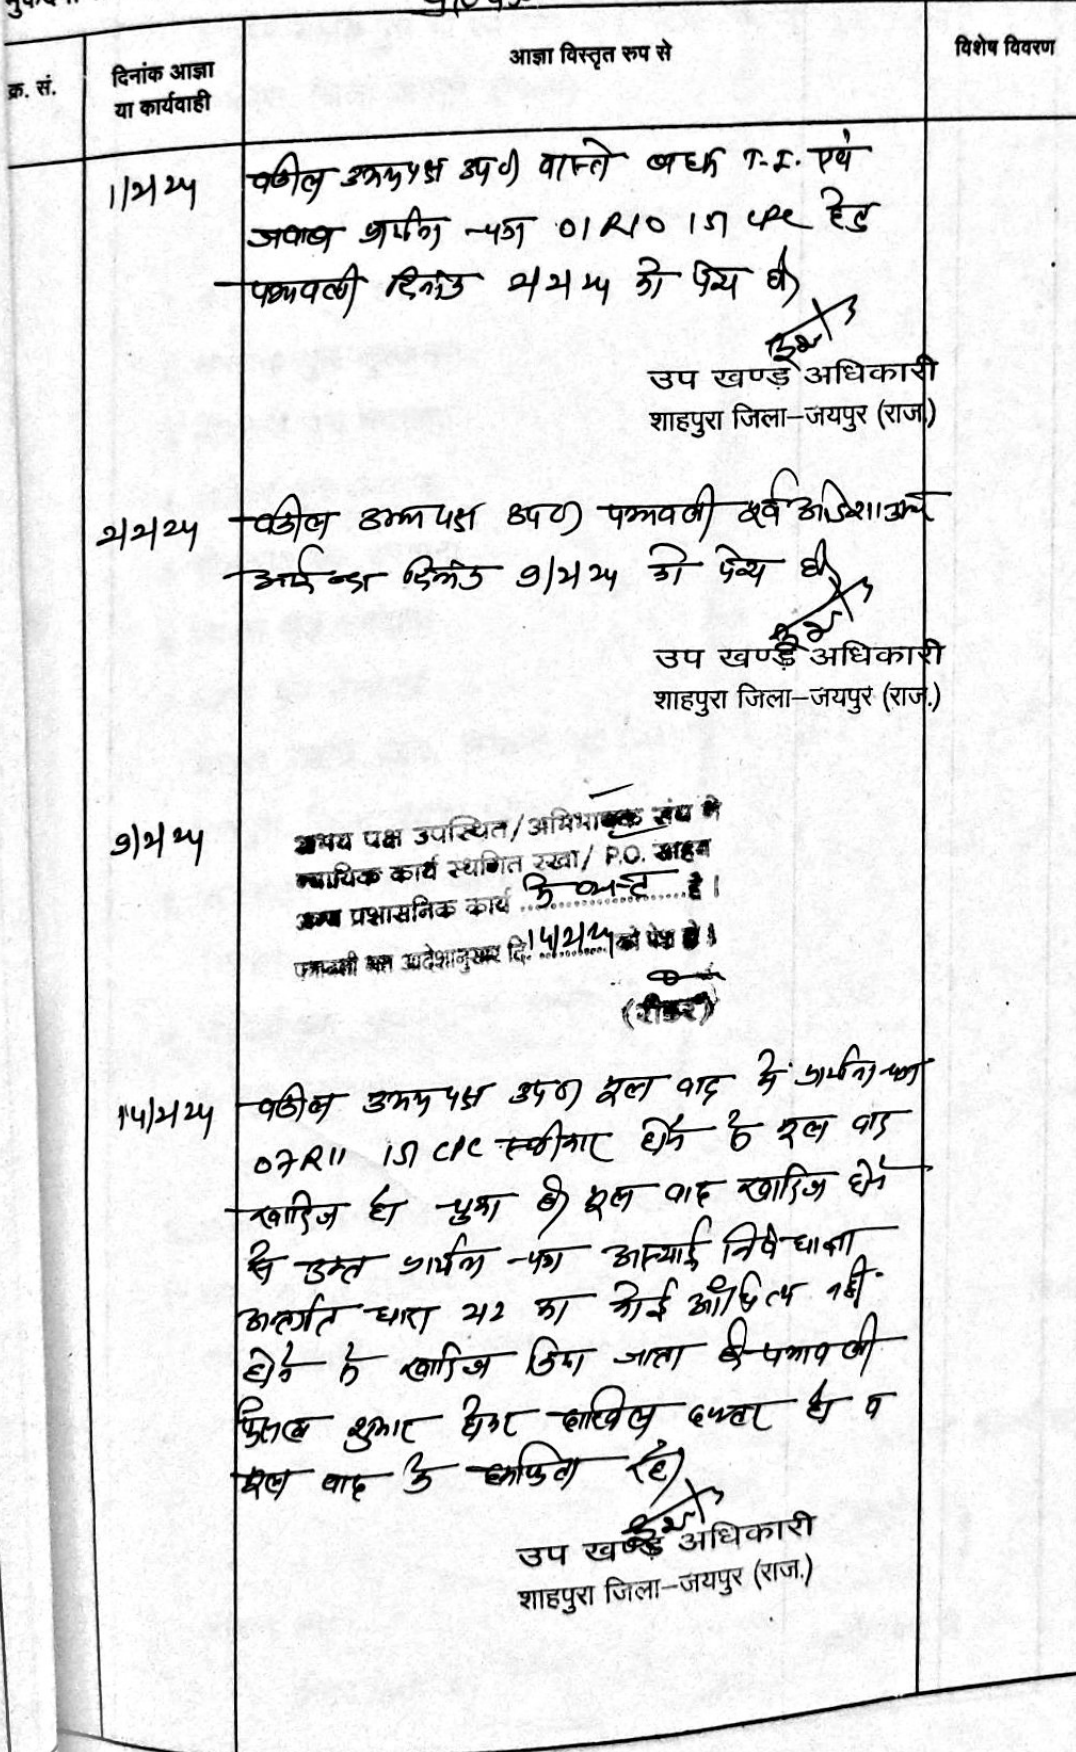 क्र. सं.
दिनांक आज्ञा
या कार्यवाही
आज्ञा विस्तृत रूप से
विशेष विवरण
1/2/24
वकील उभयपक्ष उप0 वास्ते बहस T.I. एवं
जवाब प्रार्थना-पत्र 01R10 ज्ञा CPC हेतु
पत्रावली दिनांक 2/2/24 को पेश हो
उप खण्ड अधिकारी
शाहपुरा जिला–जयपुर (राज.)
2/2/24
वकील उभयपक्ष उप0 पत्रावली पूर्व
दिनांक 9/2/24 को पेश हो
उप खण्ड अधिकारी
शाहपुरा जिला–जयपुर (राज.)
9/2/24
उभय पक्ष उपस्थित/अभिभाषक संघ ने
न्यायिक कार्य स्थगित रखा/ P.O. साहब
अन्य प्रशासनिक कार्य में व्यस्त है।
पत्रावली गत आदेशानुसार दि. 14/2/24 को पेश हो।
(रीडर)
14/2/24
वकील उभयपक्ष उप0 मूल वाद में प्रार्थना-पत्र
07R11 ज्ञा CPC स्वीकार होने से मूल वाद
खारिज हो चुका है मूल वाद खारिज होने
से उक्त प्रार्थना-पत्र अस्थाई निषेधाज्ञा
अन्तर्गत धारा 212 का कोई औचित्य नहीं
होने से खारिज किया जाता है पत्रावली
फैसल शुमार होकर दाखिल दफ्तर हो व
मूल वाद के रहे
उप खण्ड अधिकारी
शाहपुरा जिला–जयपुर (राज.)